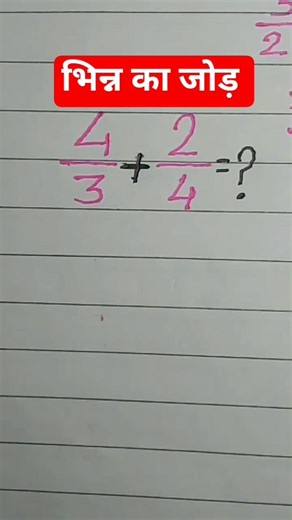 भिन्न का जोड़
4/3 + 2/4 = ?